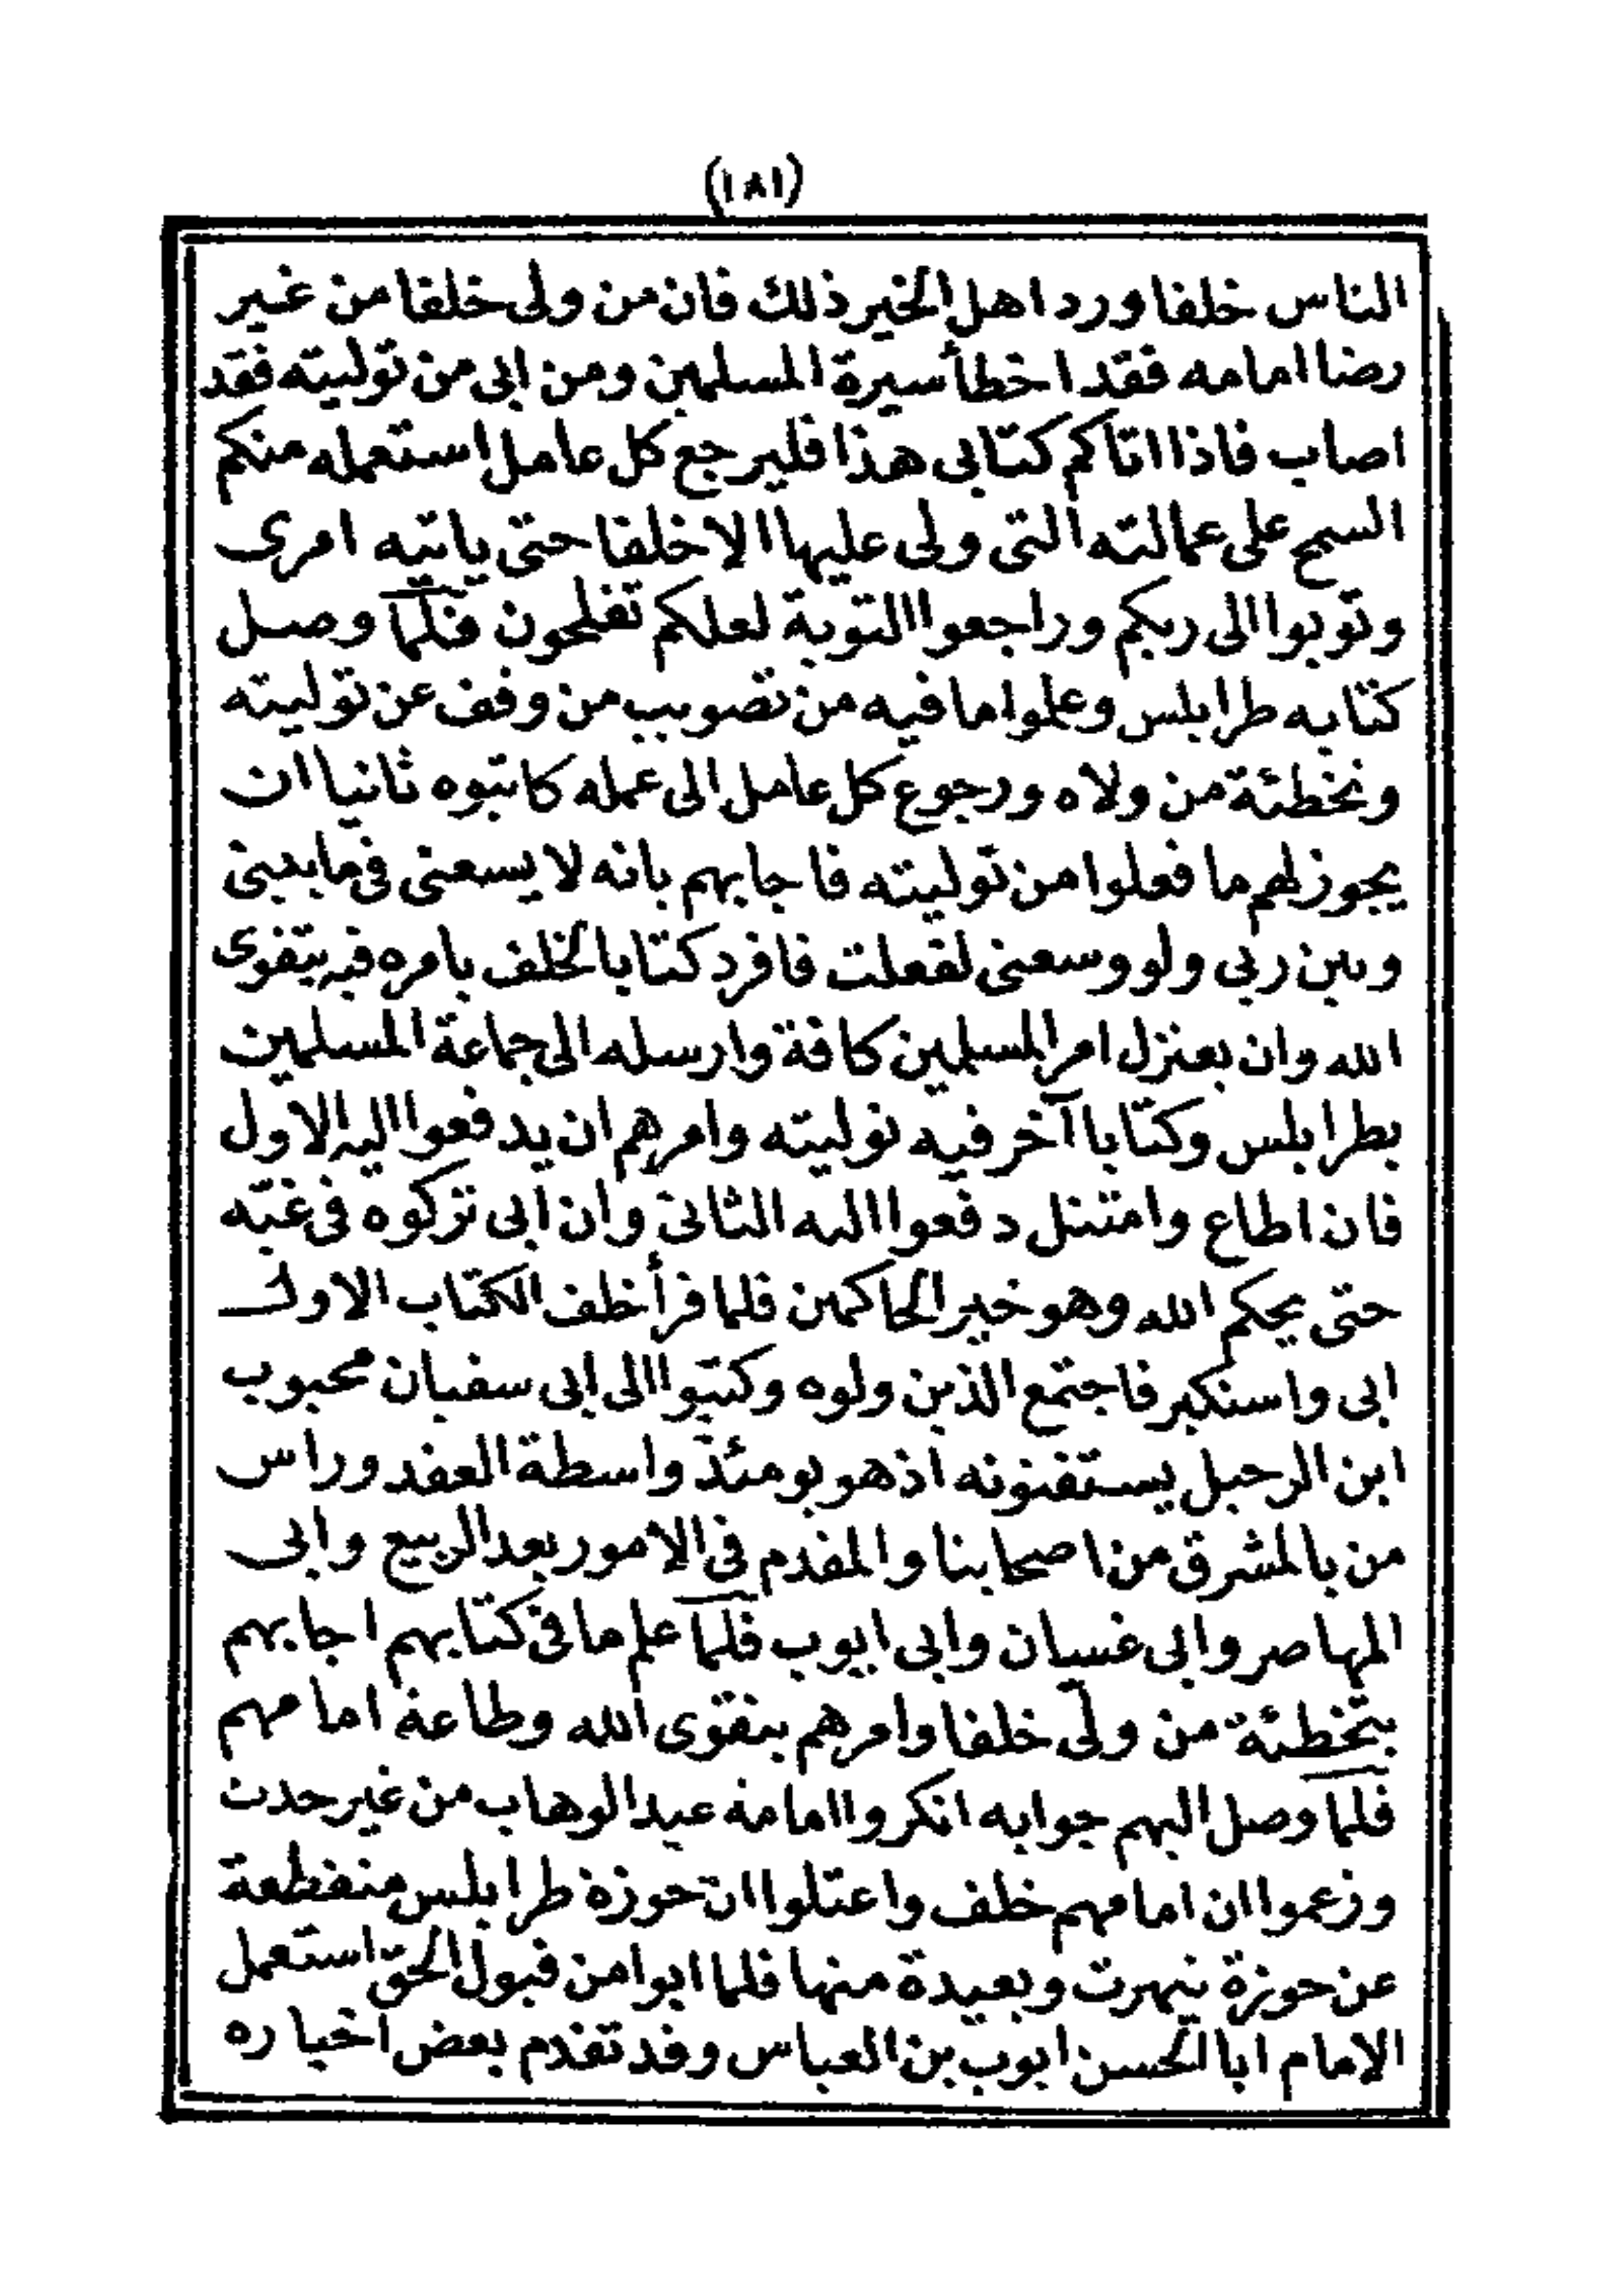 (١٨١)
الناس خلفا ورد اهل الخير ذلك فان من ولى خلفا من غير
رضا امامه فقد اخطأ سيرة المسلمين ومن ابى من توليته فقد
اصاب فاذا اتاكم كتابى هذا فليرجع كل عامل استعمله منكم
السمح على عمالته التى ولى عليها الا خلفا حتى ياتيه امرى
وتوبوا الى ربكم وراجعوا التوبة لعلكم تفلحون فلما وصل
كتابه طرابلس وعلموا ما فيه من تصويب من وقف عن توليته
وتخطئة من ولاه ورجوع كل عامل الى عمله كاتبوه ثانيا ان
يجوز لهم ما فعلوا من توليته فاجابهم بانه لا يسعنى فى ما بينى
وبين ربى ولو وسعنى لفعلت فافرد كتابا لخلف يامره فيه بتقوى
الله وان يعتزل امر المسلمين كافة وارسله الى جماعة المسلمين
بطرابلس وكتابا آخر فيه توليته وامرهم ان يدفعوا اليه الاول
فان اطاع وامتثل دفعوا اليه الثانى وان ابى تركوه فى غيّه
حتى يحكم الله وهو خير الحاكمين فلما قرأ خلف الكتاب الاول
ابى واستكبر فاجتمع الذين ولوه وكتبوا الى ابى سفيان محبوب
ابن الرحيل يستفتونه اذ هو يومئذ واسطة العقد وراس
من بالمشرق من اصحابنا والمقدم فى الامور بعد الربيع وابى
المهاصر وابى غسان وابى ايوب فلما علم ما فى كتابهم اجابهم
بتخطئة من ولّى خلفا وامرهم بتقوى الله وطاعة امامهم
فلما وصل اليهم جوابه انكروا امامة عبد الوهاب من غير حدث
وزعموا ان امامهم خلف واعتلوا ان حوزة طرابلس منقطعة
عن حوزة تيهرت وبعيدة منها فلما ابوا من قبول الحق استعمل
الامام ابا الحسن ايوب بن العباس وقد تقدم بعض اخباره